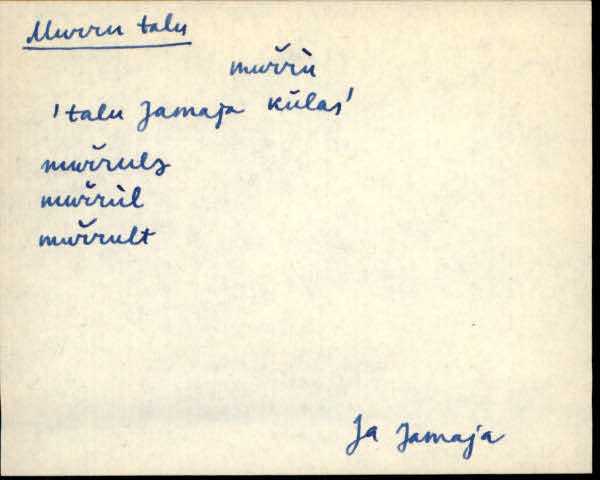 Murru talu
mur̆rù
'talu Jamaja külas'
mur̆rulʒ
mur̆rùl
mur̆rult
Ja Jamaja